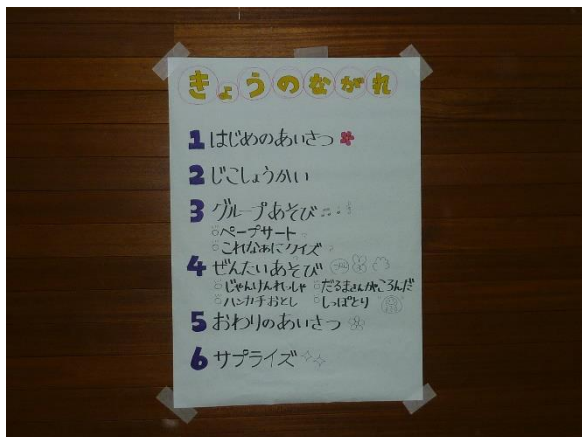 きょうのながれ
1 はじめのあいさつ
2 じこしょうかい
3 グループあそび
ペープサート
これなあにクイズ
4 ぜんたいあそび
じゃんけんれっしゃ だるまさんがころんだ
ハンカチおとし しっぽとり
5 おわりのあいさつ
6 サプライズ